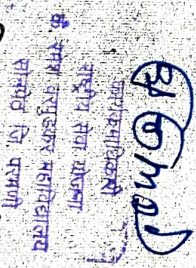 कार्यक्रमाधिकारी
राष्ट्रीय सेवा योजना
कै. रमेश वरपुडकर महाविद्यालय
सोनपेठ जि. परभणी